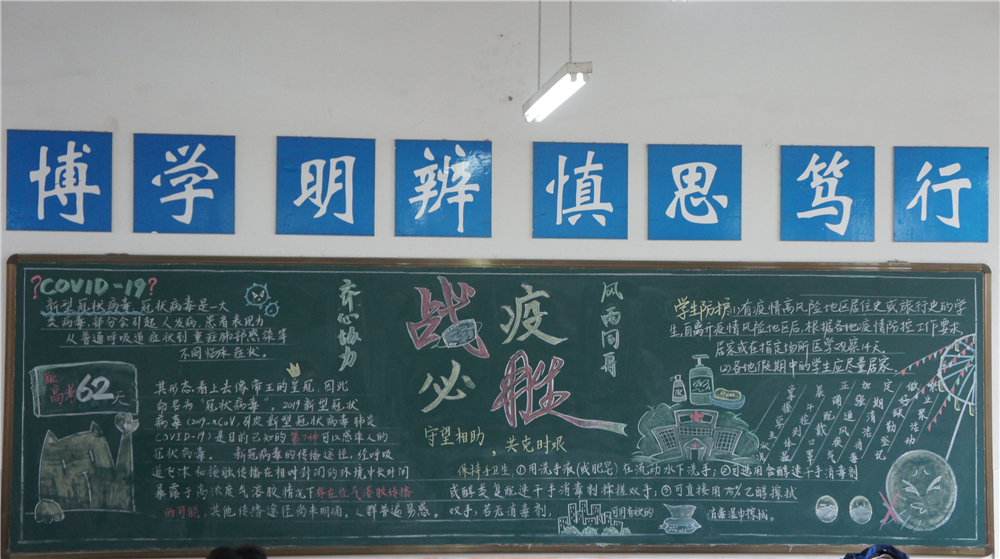 博学 明辨 慎思 笃行
?COVID-19?
新型冠状病毒 冠状病毒是一大
类病毒,部分会引起人发病,患者表现为
从普通呼吸道症状到重症肺部感染等
不同临床症状。
距
高考62天
其形态看上去像帝王的皇冠,因此
命名为"冠状病毒",2019新型冠状
病毒(2019-nCoV,引发新型冠状病毒肺炎
COVID-19)是目前已知的第7种可以感染人的
冠状病毒。 新冠病毒的传播途径,经呼吸
道飞沫和接触传播在相对封闭的环境中长时间
暴露于高浓度气溶胶情况下存在经气溶胶传播
的可能,其他传播途径尚未明确,人群普遍易感。
齐心协力
战疫
必胜
风雨同舟
守望相助,共克时艰
保持手卫生 ①用洗手液(或肥皂)在流动水下洗手;②可选用含醇速干手消毒剂
或醇类复配速干手消毒剂揉搓双手;③可直接用75%乙醇擦拭
双手,若无消毒剂, 可用有效的 消毒湿巾擦拭。
学生防护:(1)有疫情高风险地区居住史或旅行史的学
生,自离开疫情风险地区后,根据各地疫情防控工作要求,
居家或在指定场所医学观察14天。
(2)各地假期中的学生应尽量居家